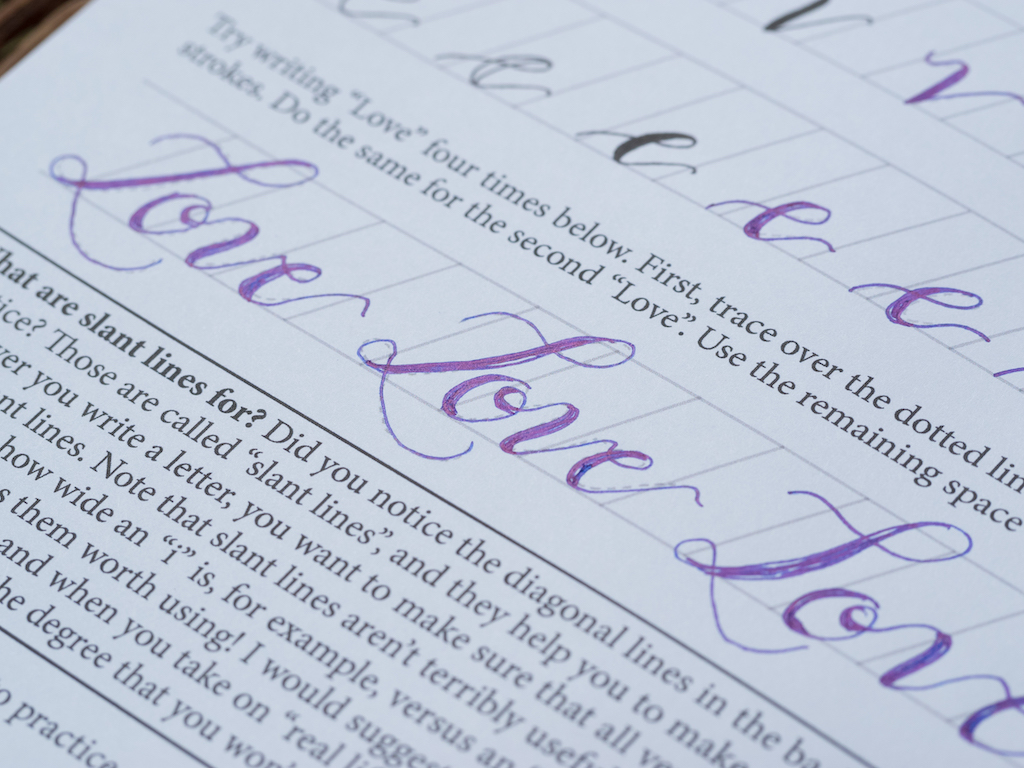 v v
e e e e e
Try writing “Love” four times below. First, trace over the dotted lin
strokes. Do the same for the second “Love”. Use the remaining space
Love Love Love
hat are slant lines for? Did you notice the diagonal lines in the ba
tice? Those are called “slant lines”, and they help you to make
ver you write a letter, you want to make sure that all ve
nt lines. Note that slant lines aren’t terribly usefu
how wide an “i” is, for example, versus an
s them worth using! I would sugges
and when you take on “real li
he degree that you won’
o practice